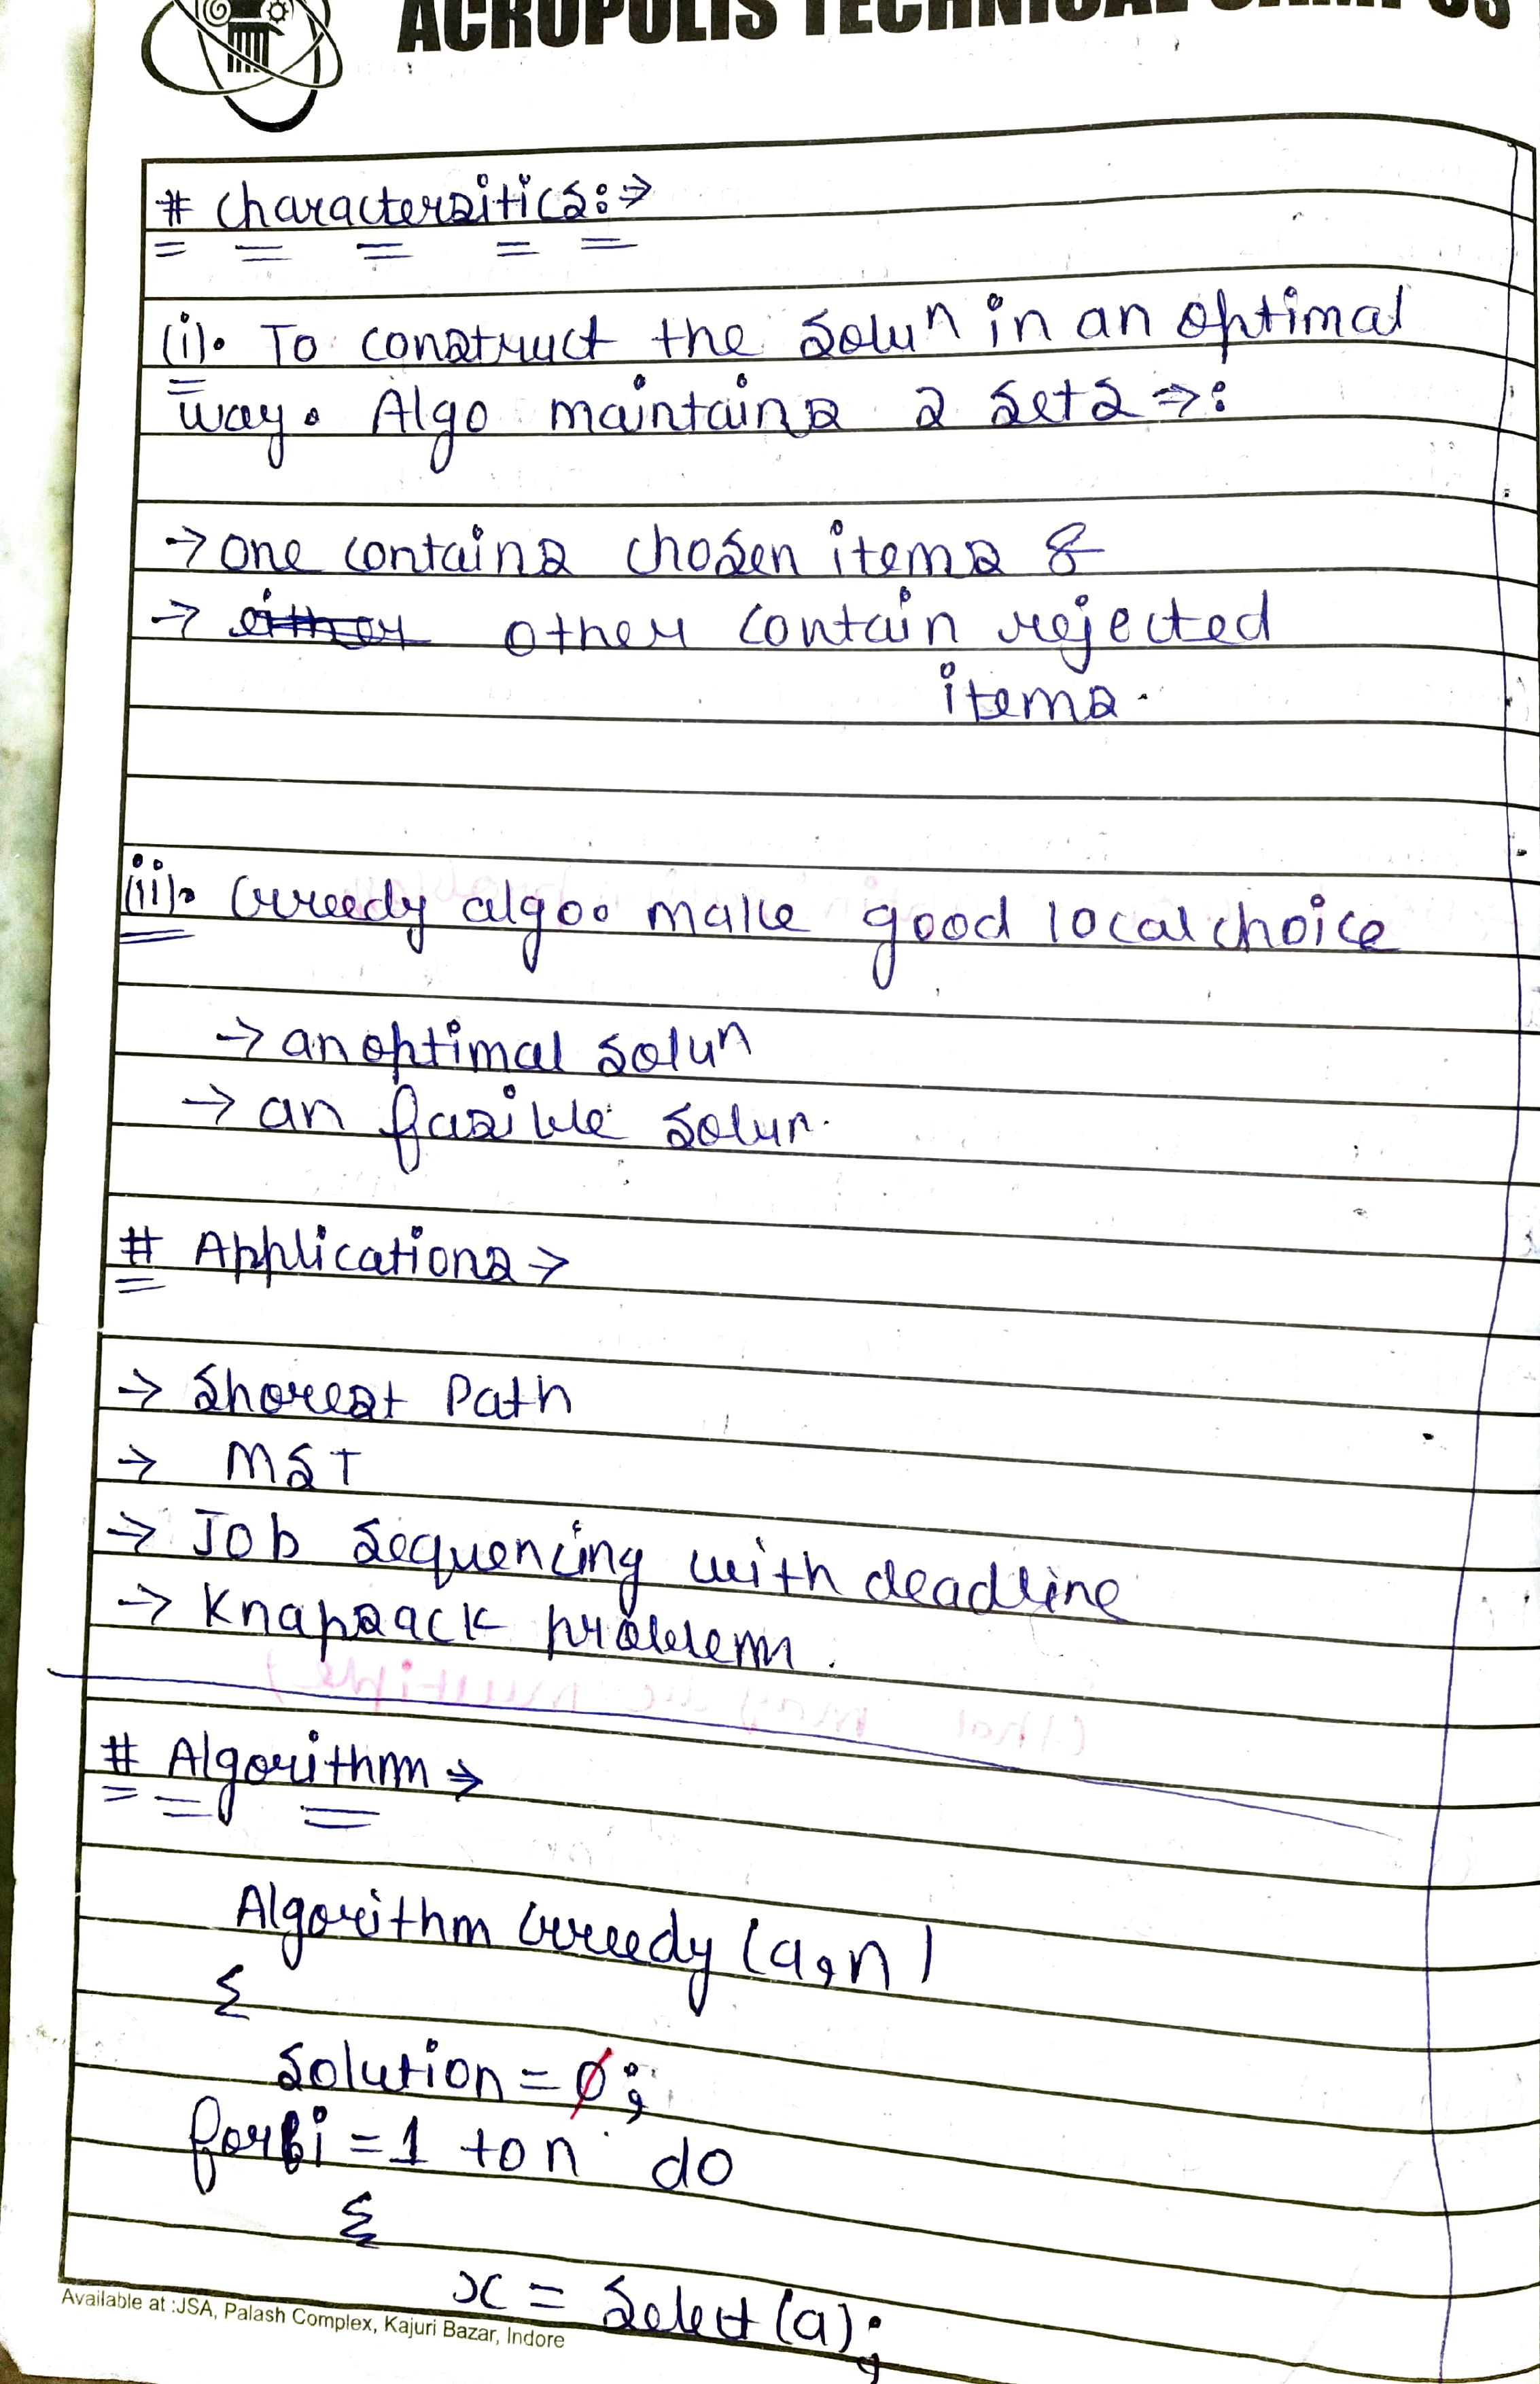 ACROPOLIS TECHNICAL CAMPUS
# Charactersitics:→
(i). To construct the Soluⁿ in an optimal
way. Algo maintains 2 sets →:
→ one contains chosen items &
→ other contain rejected
items.
(ii). Greedy algo. make good local choice
→ an optimal soluⁿ
→ an fasible solun.
# Applications →
→ Shorest Path
→ MST
→ Job Sequencing with deadline
→ Knapsack problem.
# Algorithm →
Algorithm Greedy (a,n)
{
Solution = ϕ;
for i = 1 to n do
{
x = Select (a);
Available at :JSA, Palash Complex, Kajuri Bazar, Indore